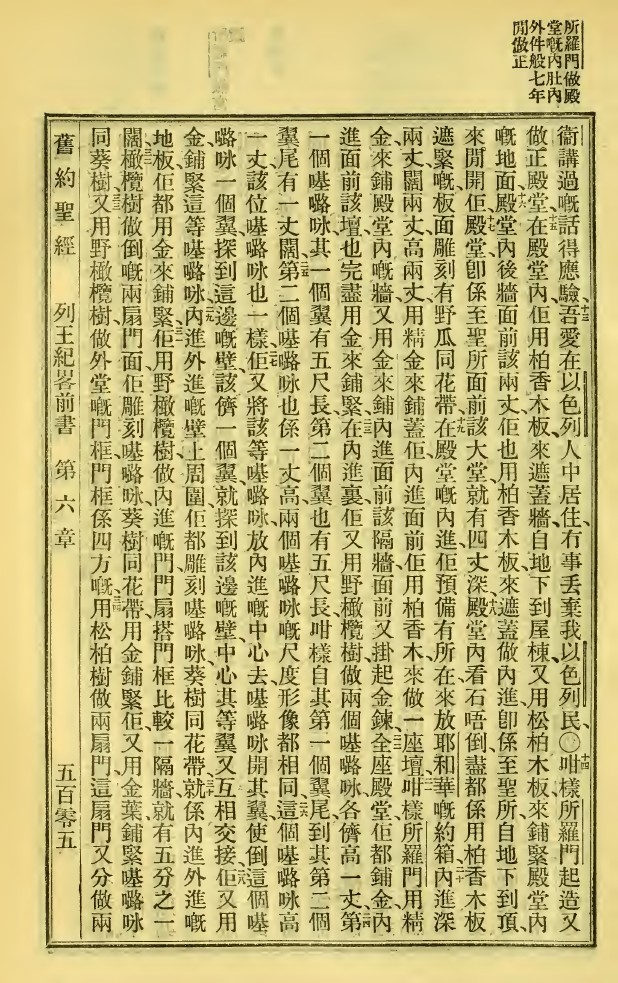 所羅門做殿
堂嘅內肚內
外件般七年
閒做正
衞講過嘅話得應驗、十三吾愛在以色列人中居住、冇事丟棄我以色列民、〇十四咁樣所羅門起造又
做正殿堂、十五在殿堂內、佢用柏香木板來遮蓋牆、自地下到屋棟、又用松柏木板來鋪緊殿堂內
嘅地面、十六殿堂內後牆面前該兩丈、佢也用柏香木板來遮蓋、做內進卽係至聖所、自地下到頂、
來閒開佢、十七殿堂卽係至聖所面前該大堂、就有四丈深、十八殿堂內看石唔倒、盡都係用柏香木板
遮緊嘅、板面雕刻有野瓜同花帶、十九在殿堂嘅內進、佢預備有所在來放耶和華嘅約箱、二十內進深
兩丈、闊兩丈、高兩丈、用精金來鋪蓋、佢內進面前、佢用柏香木來做一座壇、二一咁樣所羅門用精
金來鋪殿堂內嘅牆、又用金來鋪內進面前該隔牆、面前又掛起金鍊、二二全座殿堂佢都鋪金、內
進面前該壇也完盡用金來鋪緊、二三在內進裏佢又用野橄欖樹做兩個𡄽嚧咏、各儕高一丈、二四第
一個𡄽嚧咏其一個翼有五尺長、第二個翼也有五尺長、咁樣自其第一個翼尾到其第二個
翼尾有一丈闊、二五第二個𡄽嚧咏也係一丈高、兩個𡄽嚧咏嘅尺度形像都相同、二六這個𡄽嚧咏高
一丈、該位𡄽嚧咏也一樣、二七佢又將該等𡄽嚧咏、放內進嘅中心去、𡄽嚧咏開其翼、使倒這個𡄽
嚧咏一個翼探到這邊嘅壁、該儕一個翼、就探到該邊嘅壁、中心其等翼又互相交接、二八佢又用
金鋪緊這等𡄽嚧咏、二九內進外進嘅壁上周圍佢都雕刻𡄽嚧咏葵樹同花帶、三十就係內進外進嘅
地板、佢都用金來鋪緊、三一佢用野橄欖樹做內進嘅門、門扇搭門框比較一隔牆、就有五分之一
闊、三二橄欖樹做倒嘅兩扇門面、佢雕刻𡄽嚧咏、葵樹同花帶、用金鋪緊佢、又用金葉鋪緊𡄽嚧咏
同葵樹、三三又用野橄欖樹做外堂嘅門框、門框係四方嘅、三四用松柏樹做兩扇門、這扇門又分做兩
舊約聖經 列王紀畧前書 第六章 五百零五